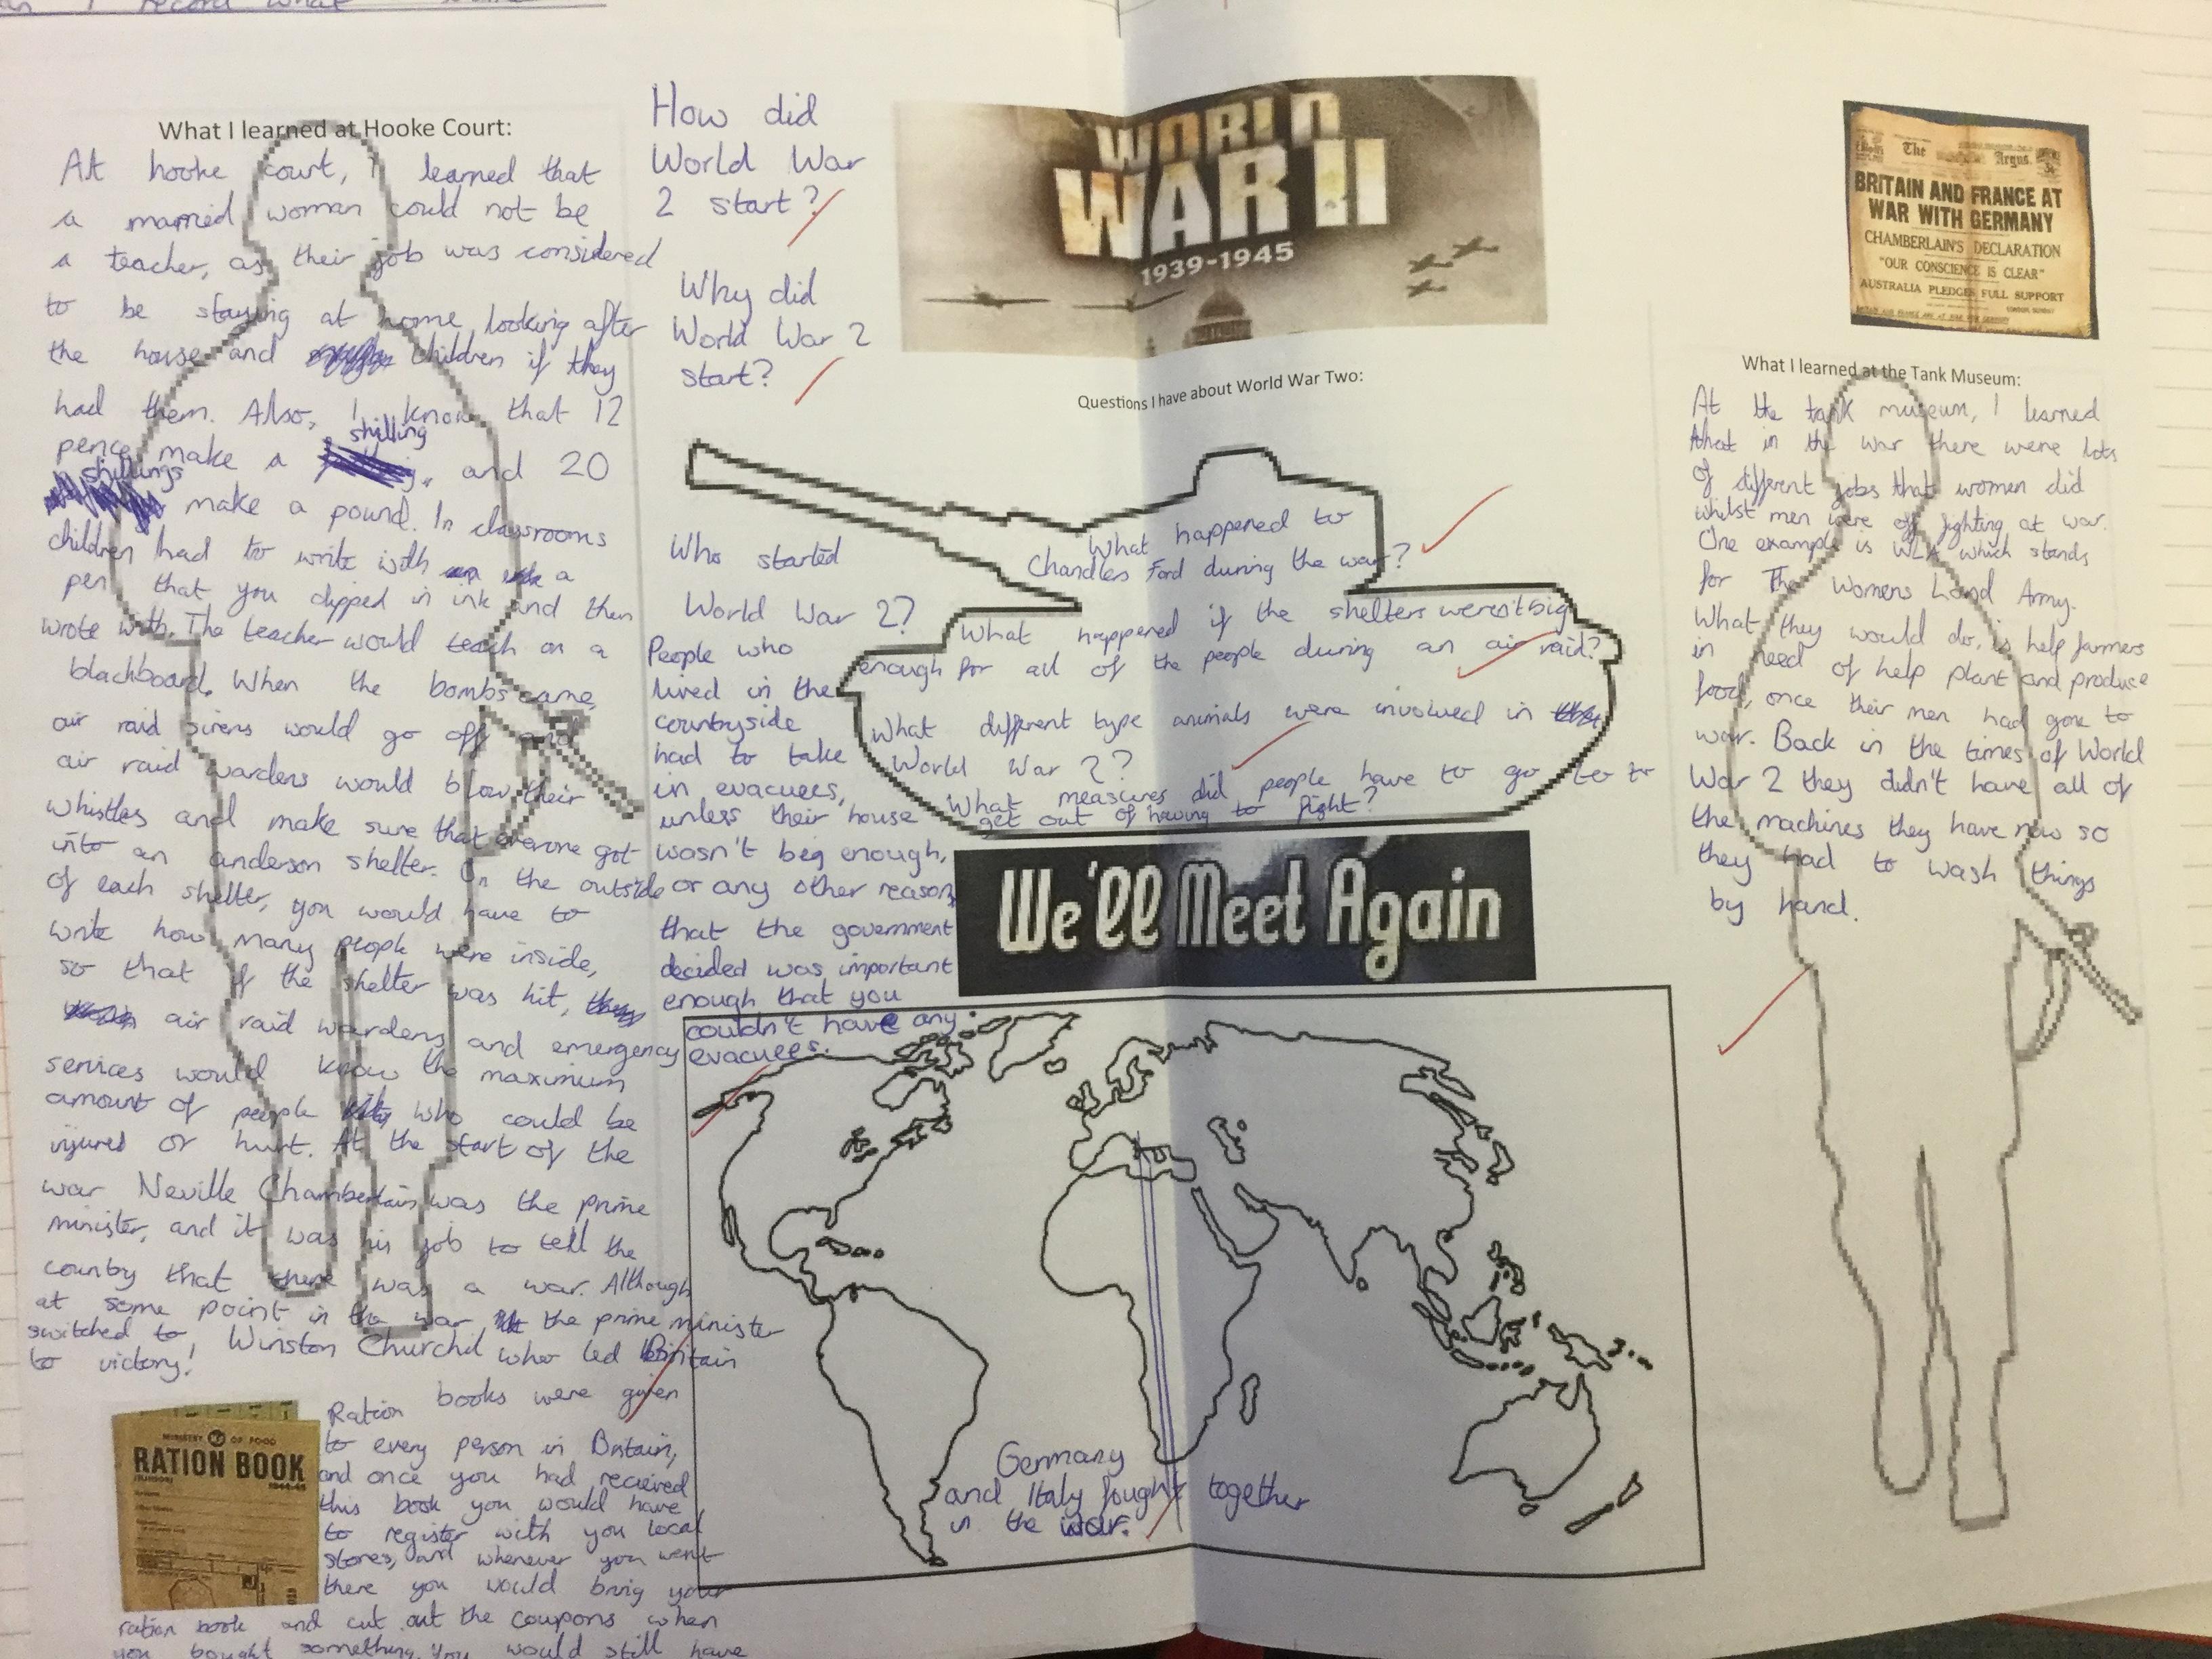 record what
What I learned at Hooke Court:
At hooke court, I learned that
a married woman could not be
a teacher, as their job was considered
to be staying at home looking after
the house and children if they
had them. Also, I know that 12
pence make a shilling, and 20
shillings make a pound. In classrooms
children had to write with a
pen that you dipped in ink and then
wrote with. The teacher would teach on a
blackboard. When the bombs came,
air raid sirens would go off and
air raid wardens would blow their
whistles and make sure that everone got
into an anderson shelter. On the outside
of each shelter, you would have to
write how many people were inside,
so that if the shelter was hit,
air raid wardens and emergency
services would know the maximum
amount of people who could be
injured or hurt. At the start of the
war Neville Chamberlain was the prime
minister, and it was his job to tell the
country that there was a war. Although
at some point in the war the prime minister
switched to, Winston Churchil who led Britain
to victory!
MINISTRY OF FOOD
RATION BOOK
Ration books were given
to every person in Britain,
and once you had recieved
this book you would have
to register with you local
stores, and whenever you went
there you would bring your
ration book and cut out the coupons when
you bought something. You would still have
How did
World War
2 start?
Why did
World War 2
start?
Who started
World War 2?
People who
lived in the
countryside
had to take
in evacuees,
unless their house
wasn't big enough,
or any other reason
that the government
decided was important
enough that you
couldn't have any
evacuees.
WORLD
WAR II
1939-1945
Questions I have about World War Two:
What happened to
Chandlers Ford during the war?
What happened if the shelters weren't big
enough for all of the people during an air raid?
What different type animals were involved in
World War 2?
What measures did people have to go to to
get out of having to fight?
We'll Meet Again
Germany
and Italy fought together
in the war.
The Argus.
BRITAIN AND FRANCE AT
WAR WITH GERMANY
CHAMBERLAIN'S DECLARATION
"OUR CONSCIENCE IS CLEAR"
AUSTRALIA PLEDGES FULL SUPPORT
What I learned at the Tank Museum:
At the tank museum, I learned
that in the war there were lots
of different jobs that women did
whilst men were off fighting at war.
One example is WLA which stands
for The Womens Land Army.
What they would do, is help farmers
in need of help plant and produce
food, once their men had gone to
war. Back in the times of World
War 2 they didn't have all of
the machines they have now so
they had to wash things
by hand.